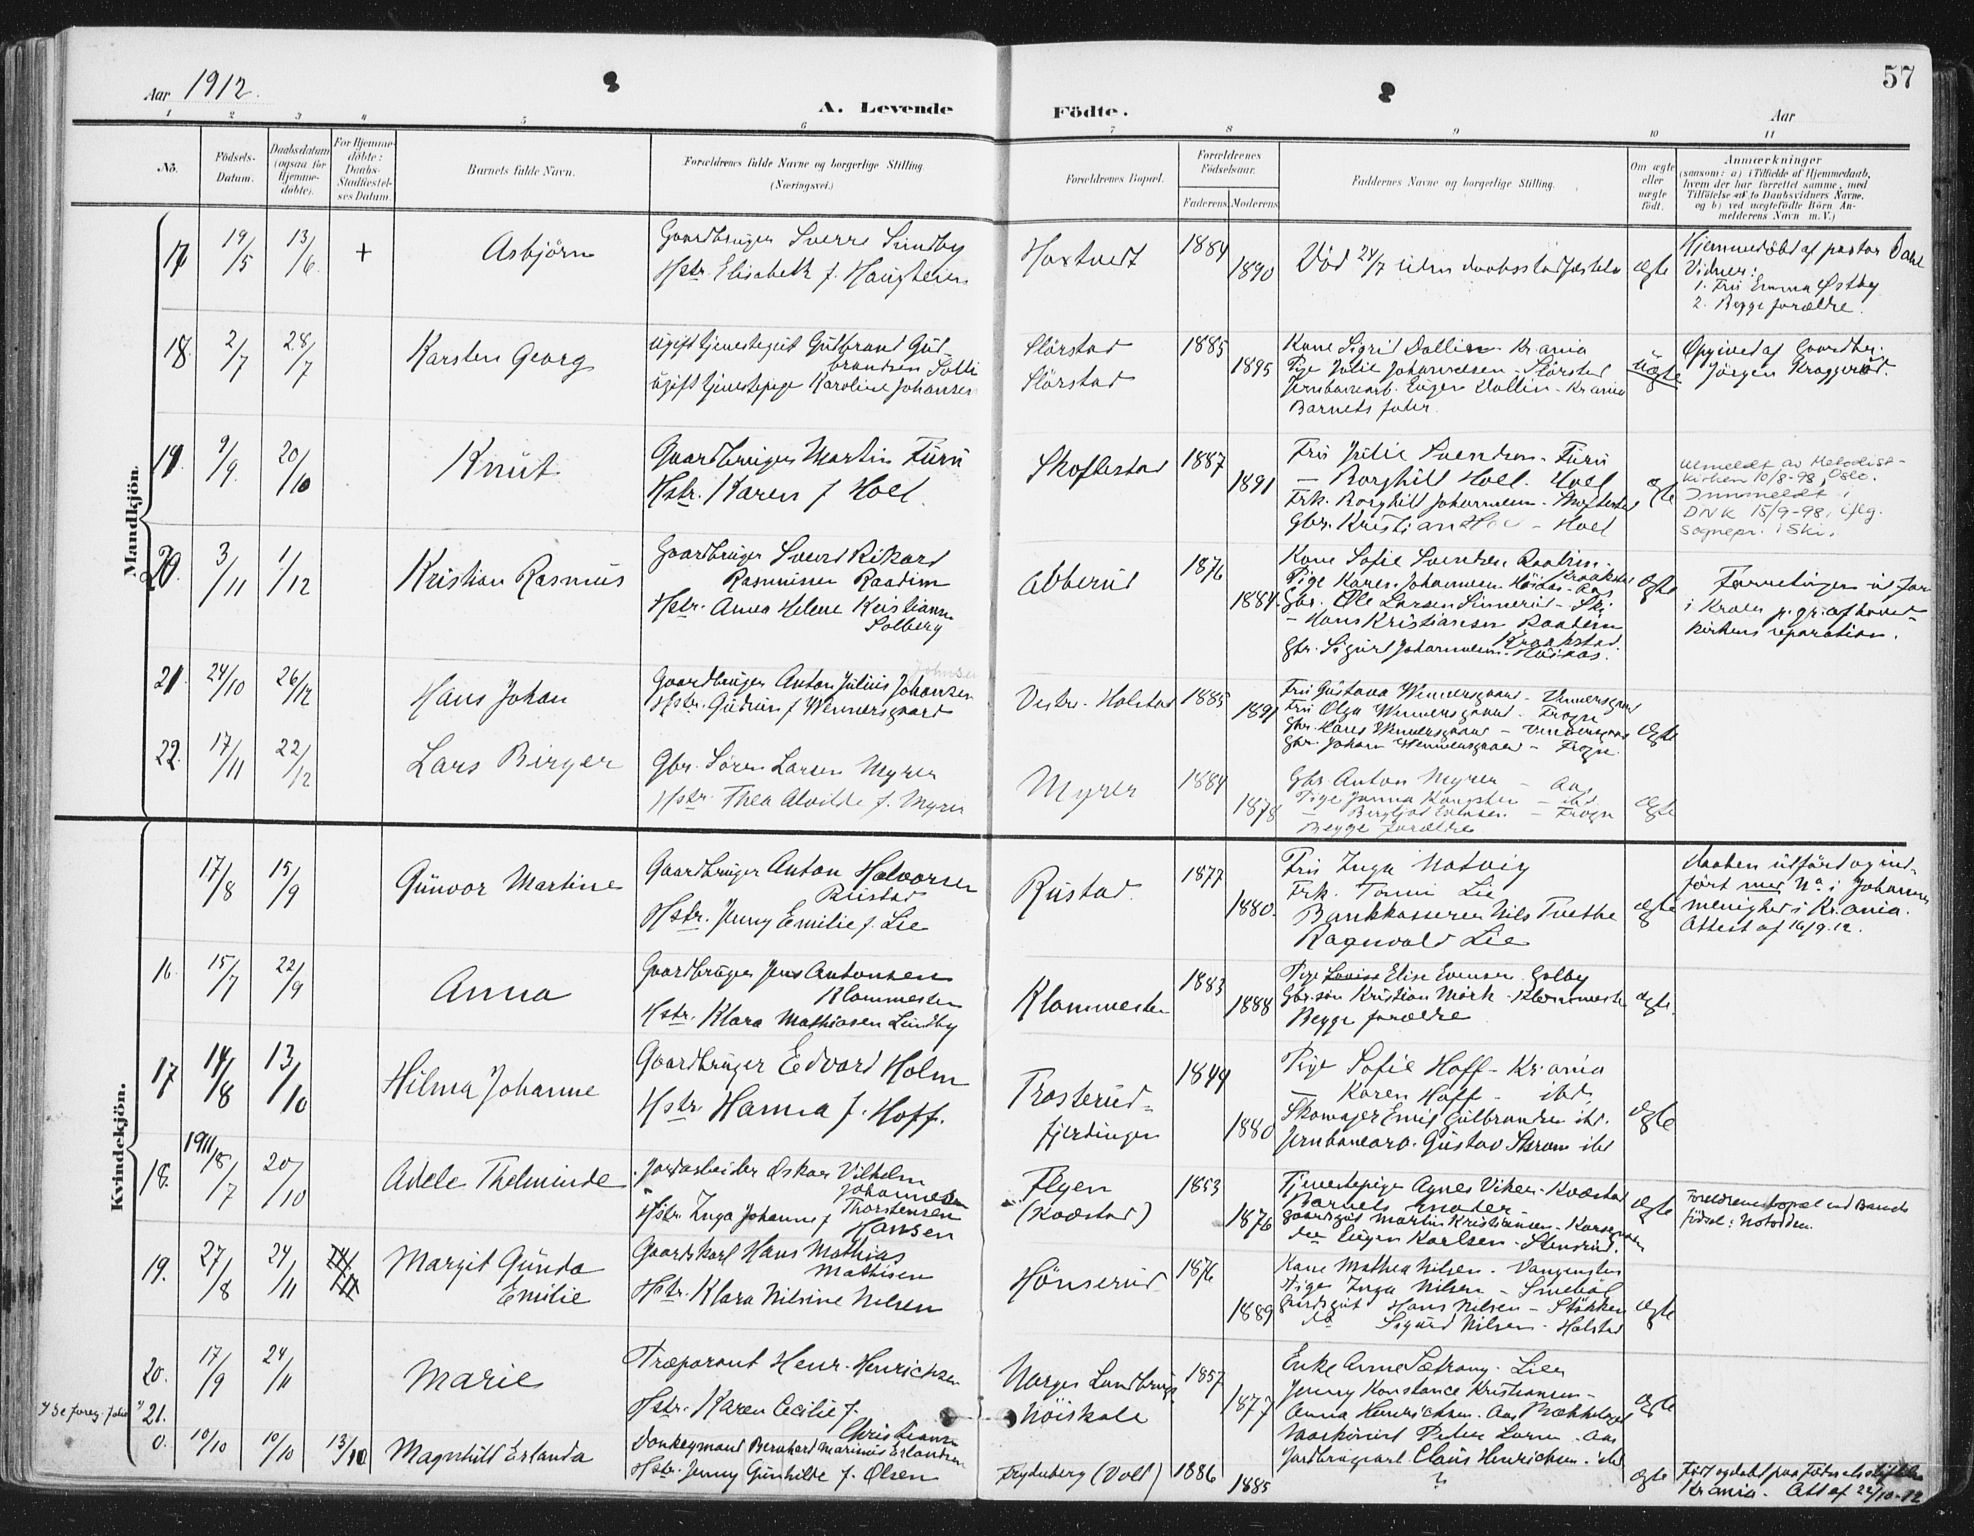 Aar 1912.
A. Levende Födte.
Aar
57
1 2 3 4 5 6 7 8 9 10 11
Nö.
Födsels-Datum.
Daabsdatum (ogsaa for Hjemme-döbte).
For Hjemme-döbte: Daabs-Stadfæstel-ses Datum.
Barnets fulde Navn.
Forældrenes fulde Navne og borgerlige Stilling. (Næringsvei.)
Forældrenes Bopæl.
Forældrenes Födselsaar.
Faderens Moderens
Faddernes Navne og borgerlige Stilling.
Om ægte eller uægte födt.
Anmærkninger
(saasom: a) i Tilfælde af Hjemmedaab, hvem der har forrettet samme, med Tilföielse af to Daabsvidners Navne, og b) ved uægtefödte Börn An-melderens Navn m. V.)
Mandkjön.
17 19/5 13/6 + Asbjörn
Gaardbruger Sverre Sundby
Hstr. Elisabeth f. Haugheien
1884
1890 Död 24/7 uden daabsstadfæstelse ægte
Hjemmedøbt af pastor Dahl
Vidner:
1. Fru Emma Østby
2. Begge forældre.
18. 2/7 28/7 Karsten Georg
Ugift tjenestegut Gulbrand Gul-
brandsen
ugift tjenestepige Karoline Johansen
Störstad
Störstad
1885
1895
Kone Sigrid Dallin Kr.ania
Pige Julie Johannesen - Störstad
Jernbanearb. Eugen Dallin - Kr.ania
Barnets fader.
uægte
Opgivet af Gaardbr.
Jörgen Kroggerud.
19 9/9 20/10 Knut
Gaardbruger Martin Furu
Hstr. Karen f Hoel.
Skoftestad 1887
1891
Fru Julie Svendsen - Furu
— Borghild Hoel. Hoel
Frk. Borghild Johannesen -
Gbr. Kristian Hoel - Hoel
ægte
Utmeldt av Metodist-
kirken 10/8-98, Oslo.
Innmeldt i
DNK 15/9-98, iflg.
sognepr. i Ski.
20. 3/11 1/12 Kristian Rasmus
Gaardbruger Svend Rikard
Rasmussen Raadim
Hstr. Anna Helene Kristiansen
Solberg
Abberud 1876
1884.
Kone Sofie Svendsen Raadim -
Kraakstad
Pige Karen Johannesen Höiaas - Aas
Gbr. Ole Larsen Sinnerud - Ski
— Hans Kristiansen Raadim
Kraakstad.
Gbr. Sigurd Johannesen - Höiaas.
ægte
Forretningen utfört
i Kroer p. gr. af hoved-
kirkens reparation.
21. 24/10 26/12 Hans Johan
Johnsen
Gaardbruger Anton Julius Johansen
Hstr. Gudrun f Wennersgaard
Vestre - Holstad 1885
1891
Fru Gustava Wennersgaard -
Fru Olga Wennersgaard - Frogn
Gbr. Hans Wennersgaard -
Gbr. Johan Wennersgaard - Frogn.
ægte
22. 17/11 22/12 Lars Birger
Gbr. Sören Larsen Myrer
Hstr. Thea Alvilde f. Myrer
Myrer 1884
1878
Gbr. Anton Myrer — Aas
Pige Janna Kongsten — ibd
— — Frogn
Begge forældre
ægte
Kvindekjön.
17/8 15/9 Gunvor Martine
Gaardbruger Anton Halvorsen
Rustad
Hstr. Jenny Emilie f. Lie
Rustad. 1877
1880.
Fru Inga Natvig
Frk. Lie
Bankkasserer Nils Tvethe
Ragnvald Lie
ægte
Daaben utfört og ind-
fört med No. i Johannes
menighed i Kr.ania.
Attest af 16/9.12.
16. 15/7 22/9 Anna
Gaardbruger Jens Antonsen
Klommesten
Hstr. Klara Mathiasen Sundby
Klommesten 1883
1888
Pige Lovise Elise Evensen Galby
Gbr.søn Kristian Mörk - Klommesten
Begge forældre
ægte.
17 14/8 13/10 Hilma Johanne
Gaardbruger Edvard Holm
Hstr. Hanna f. Hoff.
Trosterud-
fjerdingen
1844
1880
Pige Sofie Hoff - Kr.ania
— Karen Hoff — ibd.
Skomager Emil Gulbrandsen ibd.
Jernbanearb. Gustav Skram ibd
ægte
18. 1911 18/7 20/10 Adele Thelminde
Jordarbeider Oskar Vilhelm
Johannesen
Thorstensen
Hstr. Inga Johanne f Hansen
Flyen
(Kvæstad)
1853
1876
Tjenestepige Agnes Viken - Kvæstad
Barnets moder -
Gaardsgut Martin Kristiansen -
do Eugen Karlsen -
ægte
Forældrenes bopæl ved Barnets
födsel: Notodden
19. 27/8 24/11 Margit Gunda
Emilie
Gaardskarl Hans Mathias
Mathisen
Hstr. Klara Nilsine Nilsen
Hönserud 1876
1889
Kone Mathea Nilsen - Vangensten
Pige Inga Nilsen - Smeböl
Gaardsgut Hans Nilsen - Stökken
do Sigurd Nilsen - Holstad
ægte
20. 17/9 24/11 Marie
Træparant Henr. Henrichsen
Hstr. Karen Cecilie f.
Christiansen
Norges Landbrugs
höiskole
1857
1877
Enke Anne Sætrang - Lien
Jenny Konstance Kristiansen -
Anna Henrichsen - Aas
Peter Larsen - Aas
Claus Henrichsen - ibd
ægte
21.
0. 10/10 10/10 13/10 Magnhild Erlanda
Donkeymand Bernhard Marinius Erlandsen
Hstr. Jenny Gunhilde f. Olsen
Frydenberg (Voll) 1886
1885
?
ægte
Født og døbt paa Fødselsstiftelsen
Kr.ania. Att af 22/10-12